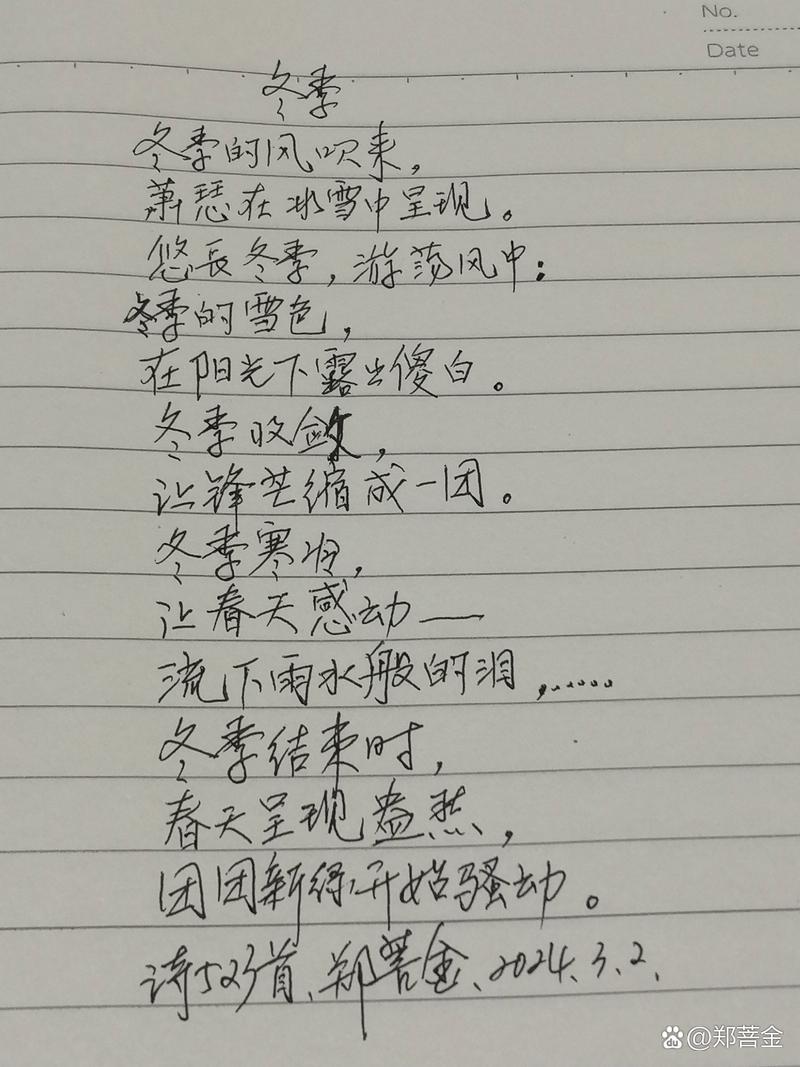 No.
Date
冬季
冬季的风吹来，
萧瑟在冰雪中呈现。
悠長冬季，游荡风中：
冬季的雪色，
在阳光下露出傻白。
冬季收敛，
让锋芒缩成一团。
冬季寒冷，
让春天感动——
流下雨水般的泪，……
冬季结束时，
春天呈现盎然，
团团新绿开始骚动。
诗523首、郑菩金、2024.3.2.
@郑菩金